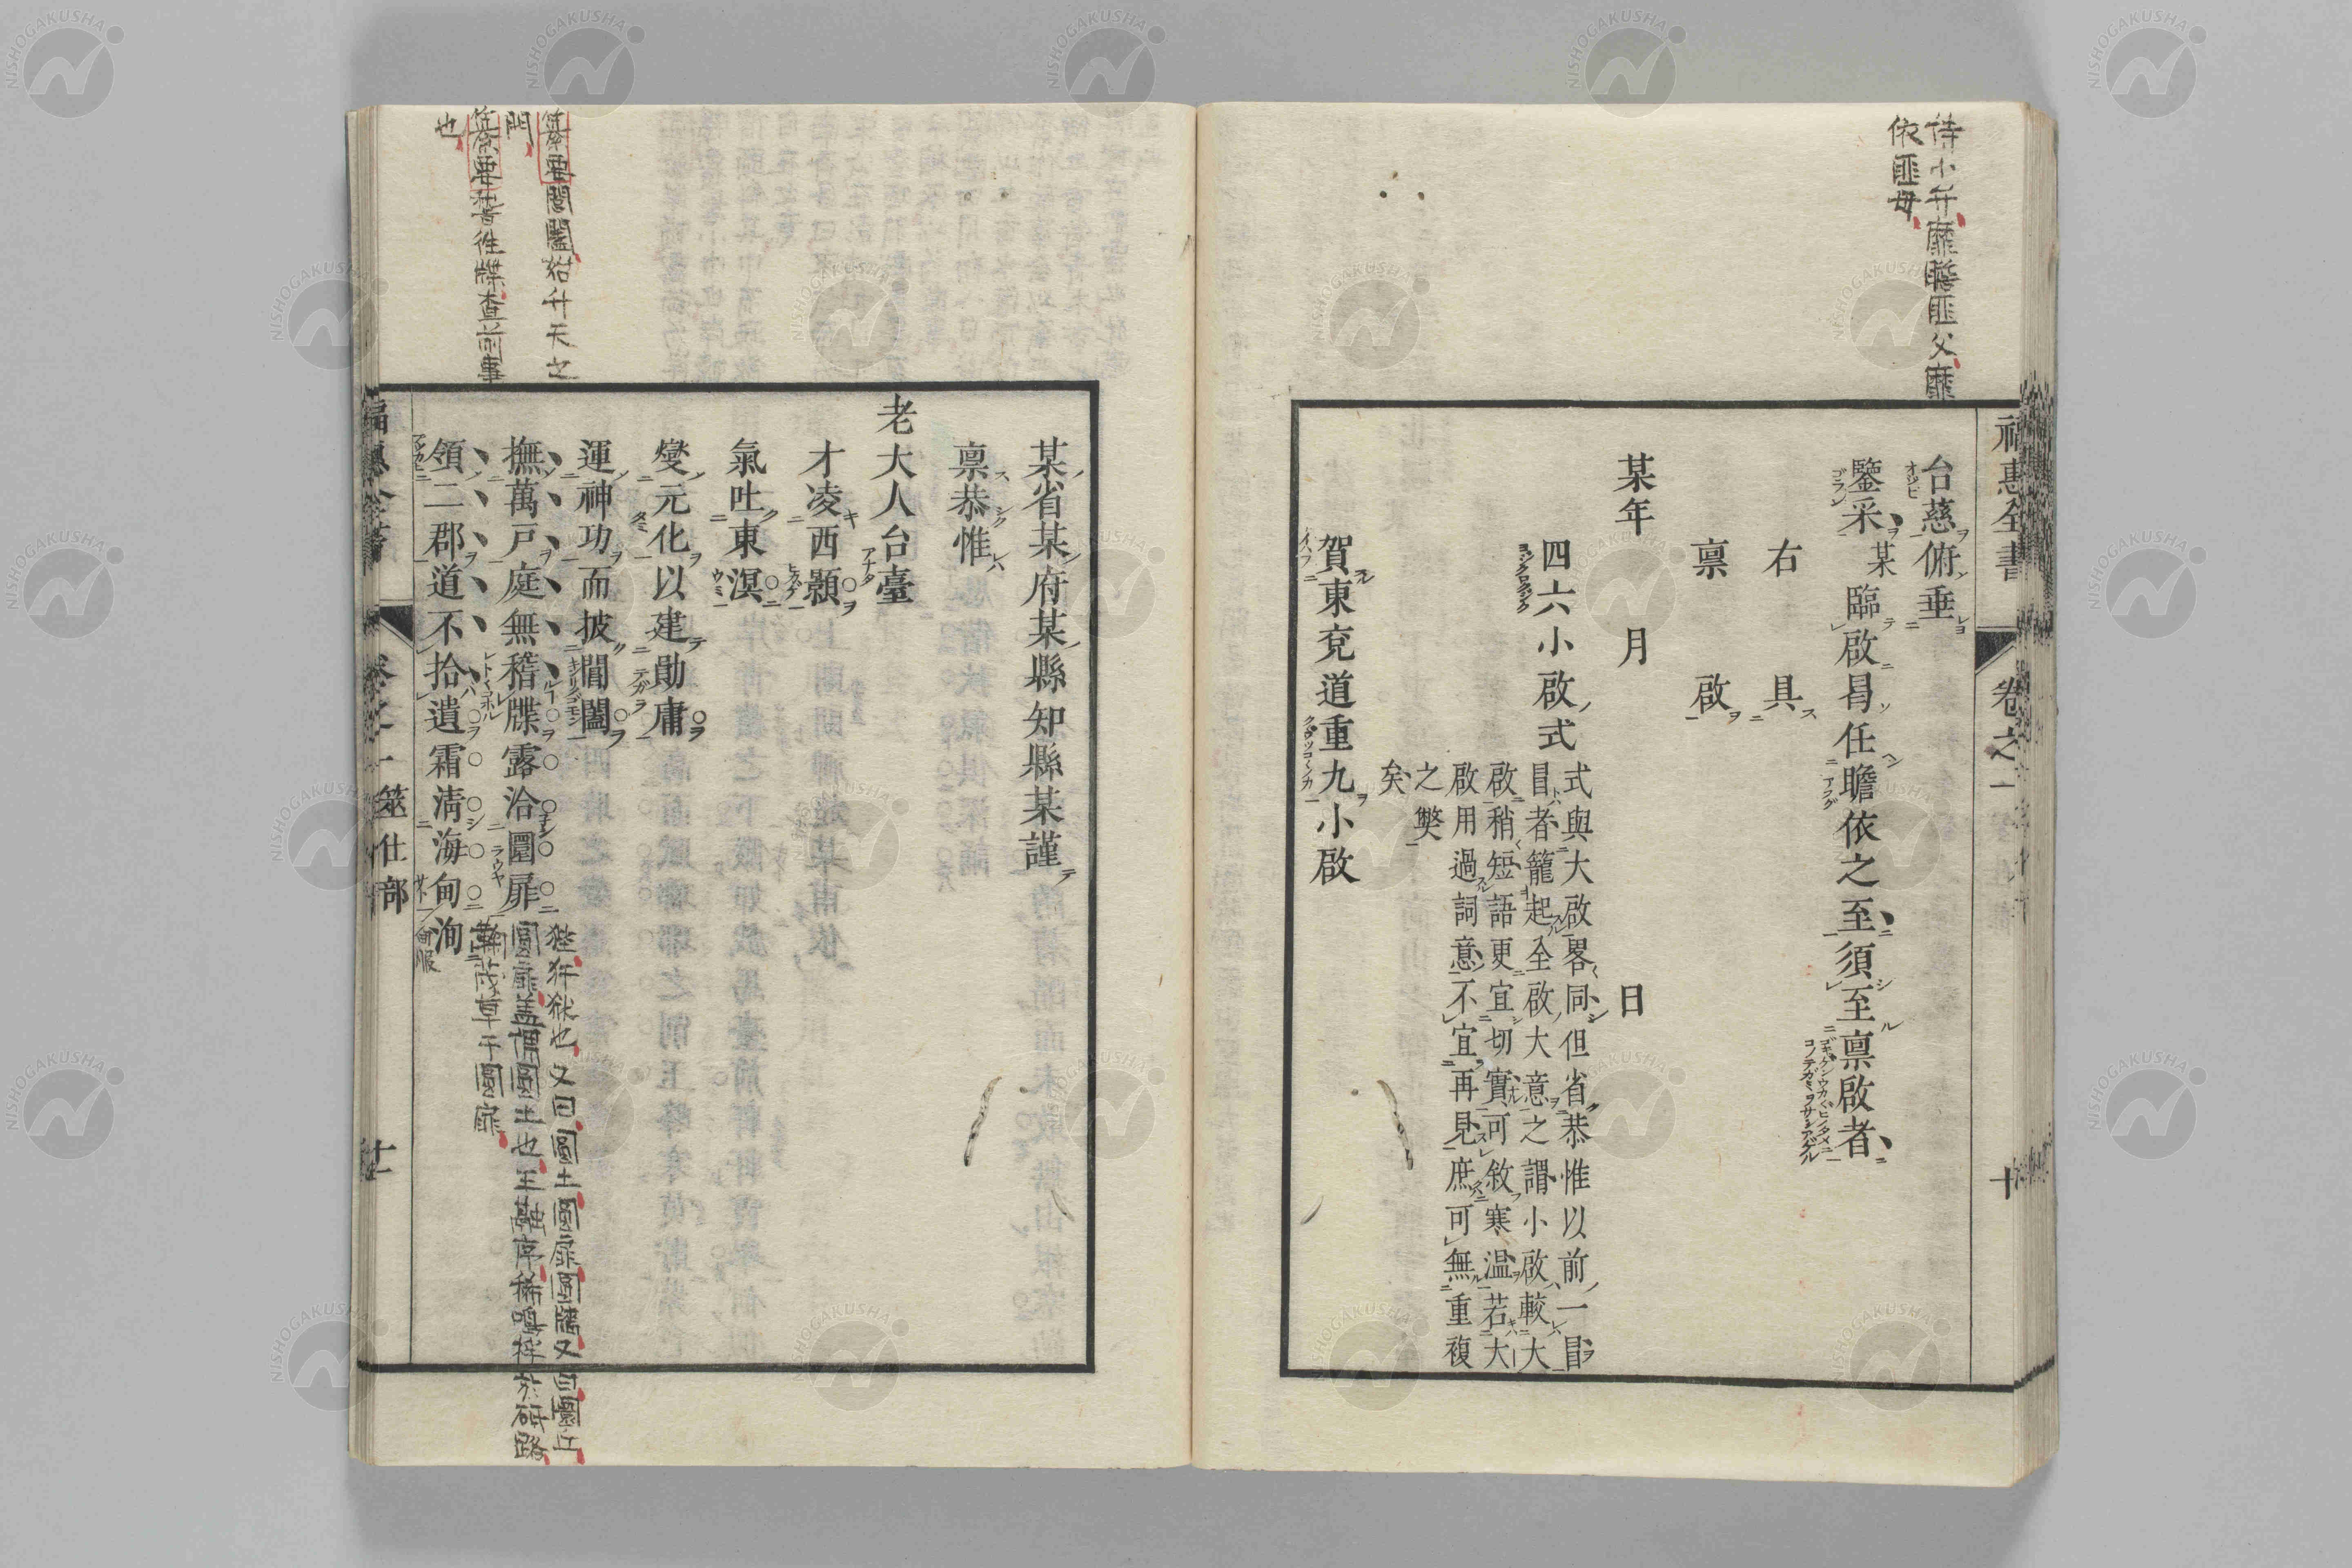 福惠全書 卷之一 十
詩小弁靡瞻匪父靡
依匪母
台慈俯垂
鑒采某臨啟曷任瞻依之至須至稟啟者
右具
稟啟
某年 月 日
四六小啟式
式與大啟畧同但省恭惟以前一冒
冒者籠起全啟大意之謂小啟較大
啟稍短語更宜切實可敘寒温若大
啟用過詞意不宜再見庶可無重複
之弊
矣
賀東兗道重九小啟
某省某府某縣知縣某謹
稟恭惟
老大人台臺
才凌西顥
氣吐東溟
燮元化以建勛庸
運神功而披閶闔
撫萬戸庭無稽牒露洽圜扉
領二郡道不拾遺霜清海甸洵
福惠全書 卷之一 筮仕部 十一
纂要閶闔始升天之
門
纂要稽徃牒查前事
也
狴犴獄也又曰圓土圓扉圓牗又曰圜丘
圓扉盖謂圓土也王融序稀鳴桴於砥路
鞠茂草于圓扉
甸服